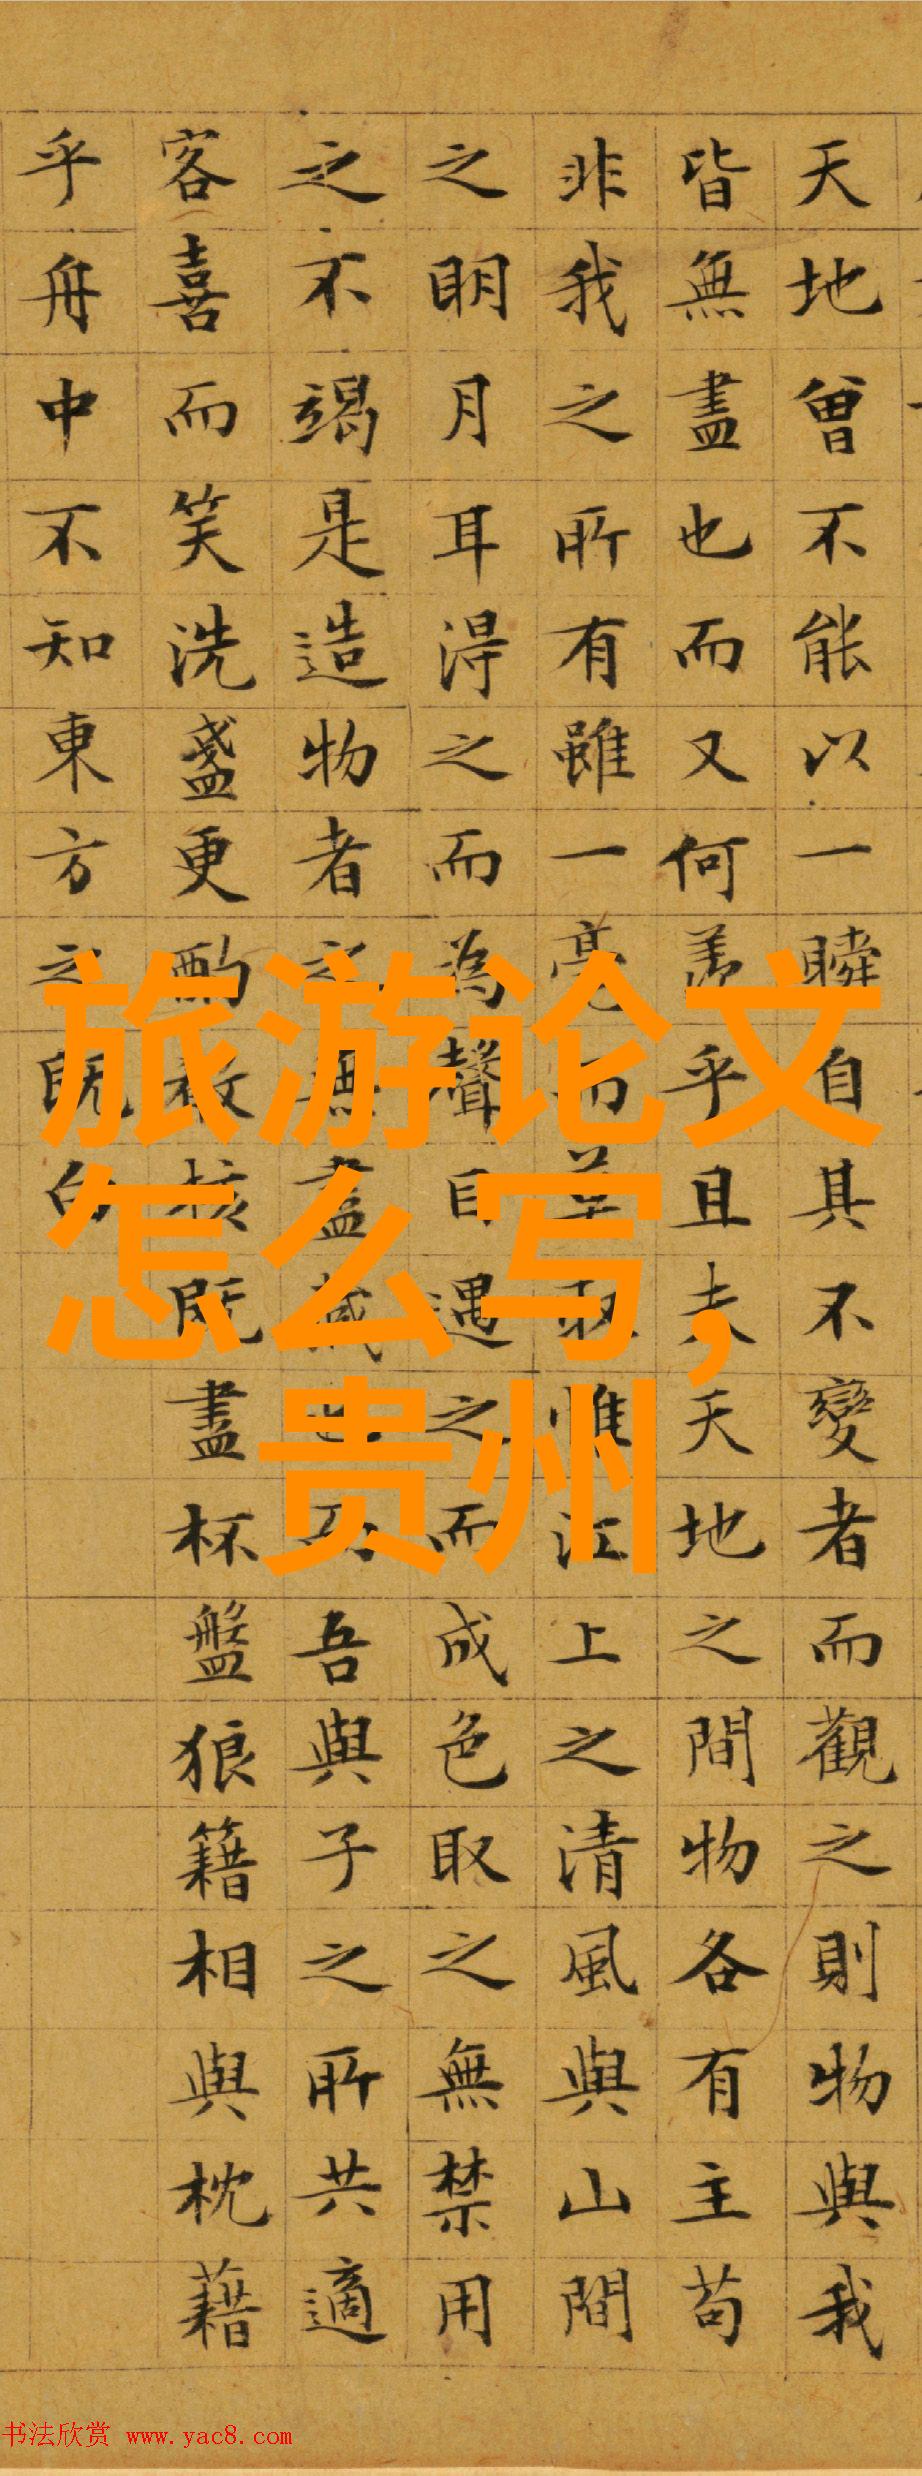 天地曾不能以一瞬自其不變者而觀之則物與我
皆無盡也而又何羨乎且夫天地之間物各有主苟
非我之所有雖一毫而莫取惟江上之清風與山間
之明月耳得之而為聲目遇之而成色取之無禁用
之不竭是造物者之無盡藏也而吾與子之所共適
客喜而笑洗盞更酌核既盡杯盤狼籍相與枕藉
乎舟中不知東方之既白
旅游论文
怎么写,
贵州
书法欣赏 www.yac8.com